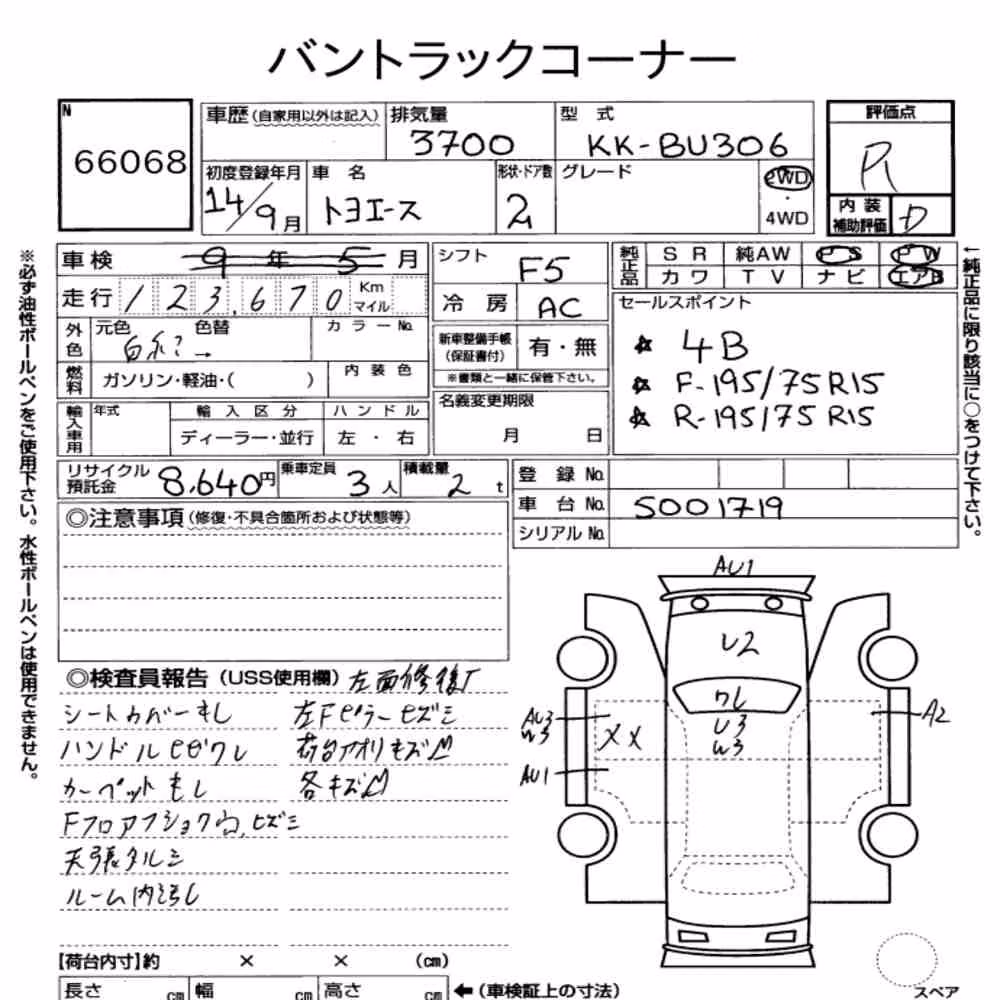 バントラックコーナー
N
66068
車歴(自家用以外は記入)
排気量
3700
型 式
KK-BU306
評価点
R
初度登録年月
14/9月
車 名
トヨエース
形状・ドア数
2
グレード
2WD
・
4WD
内 装
補助評価
D
車検 9年5月
走行 123,670 Km
マイル
シフト F5
冷 房 AC
純正品
SR 純AW PS PW
カワ TV ナビ エアB
セールスポイント
☆ 4B
☆ F-195/75R15
☆ R-195/75R15
外色
元色 色替
カラーNo.
燃料
ガソリン・軽油・( )
内 装 色
新車整備手帳
(保証書付)
有・無
※書類と一緒に保管下さい。
輸入車用
年式
輸 入 区 分
ハ ン ド ル
ディーラー・並行
左 ・ 右
名義変更期限
月 日
リサイクル
預託金
8,640円
乗車定員
3人
積載量
2t
登 録 No.
車 台 No. 5001719
シリアル No.
◎注意事項(修復・不具合箇所および状態等)
◎検査員報告(USS使用欄)
シートカバーモレ
左Fピラーヒズミ
荷台アオリキズ凹
カーペットモレ
各キズ凹
天張タルミ
ルーム内汚レ
AU1
U2
ワレ
U3
W3
AU3
W3
XX
AU1
A2
【荷台内寸】約 × × (cm)
長さ cm 幅 cm 高さ cm ←(車検証上の寸法)
スペア
※必ず油性ボールペンをご使用下さい。水性ボールペンは使用できません。
←純正品に限り該当に○をつけて下さい。